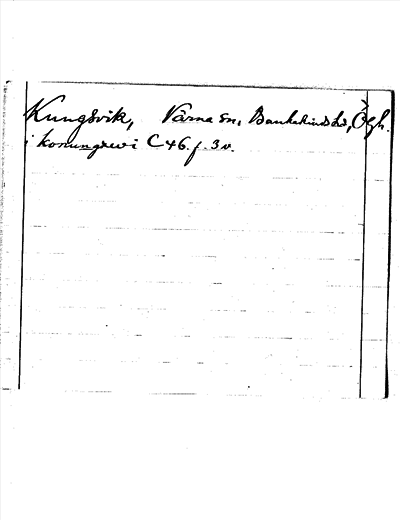 Kungsvik, Värna sn, Bankekinds hd, Ögh.
i konungxwi C 46. f. 3 v.